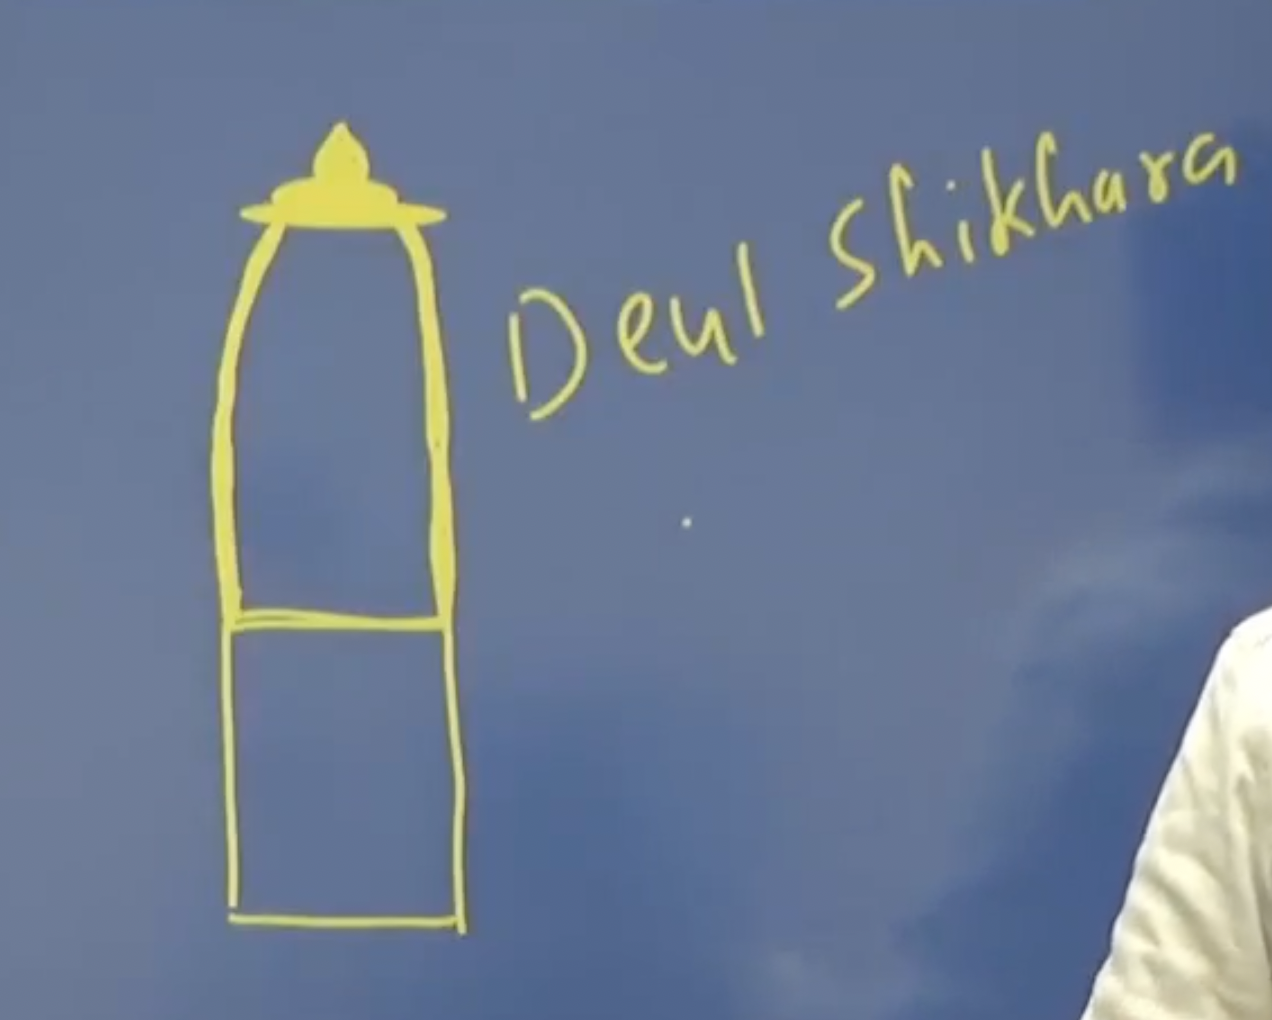 Deul Shikhara